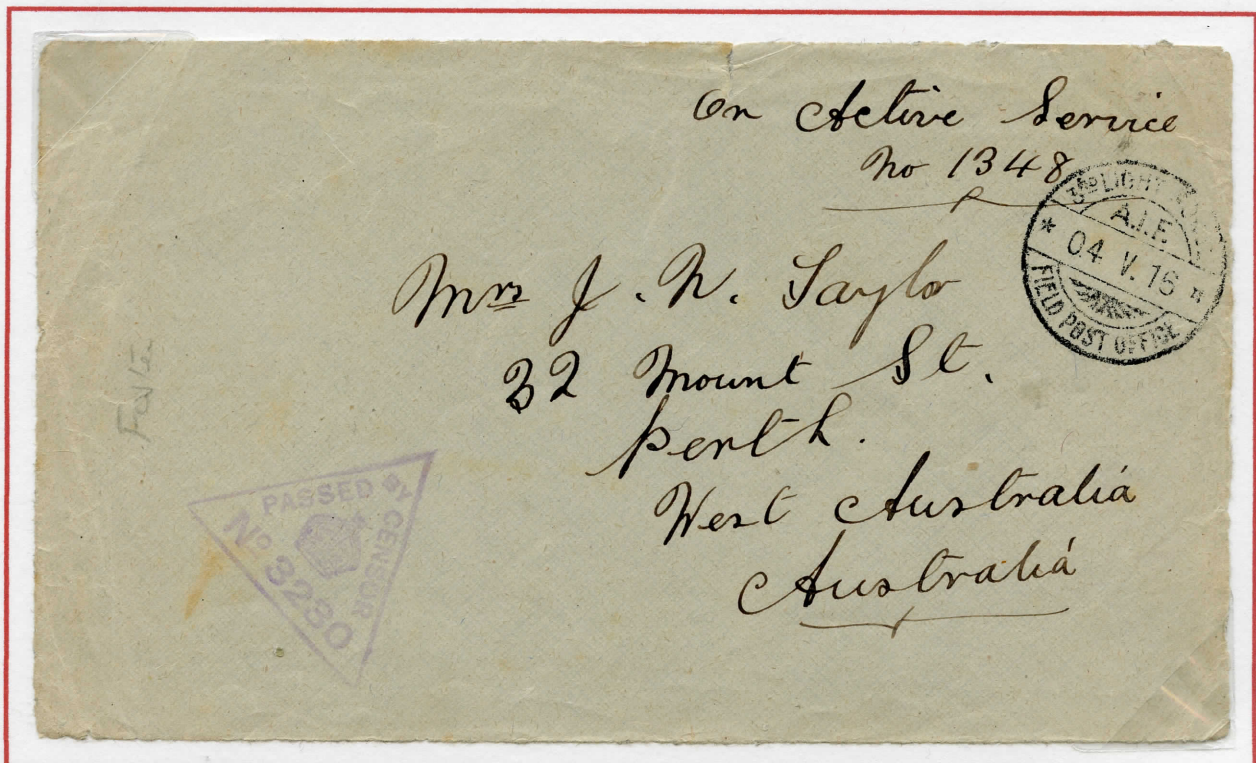 On Active Service
No 1348
3RD LIGHT
A.I.F.
04 V. 16
FIELD POST OFFICE
Mrs J. N. Taylor
32 Mount St.
Perth.
West Australia
Australia
PASSED BY CENSOR
No 3230